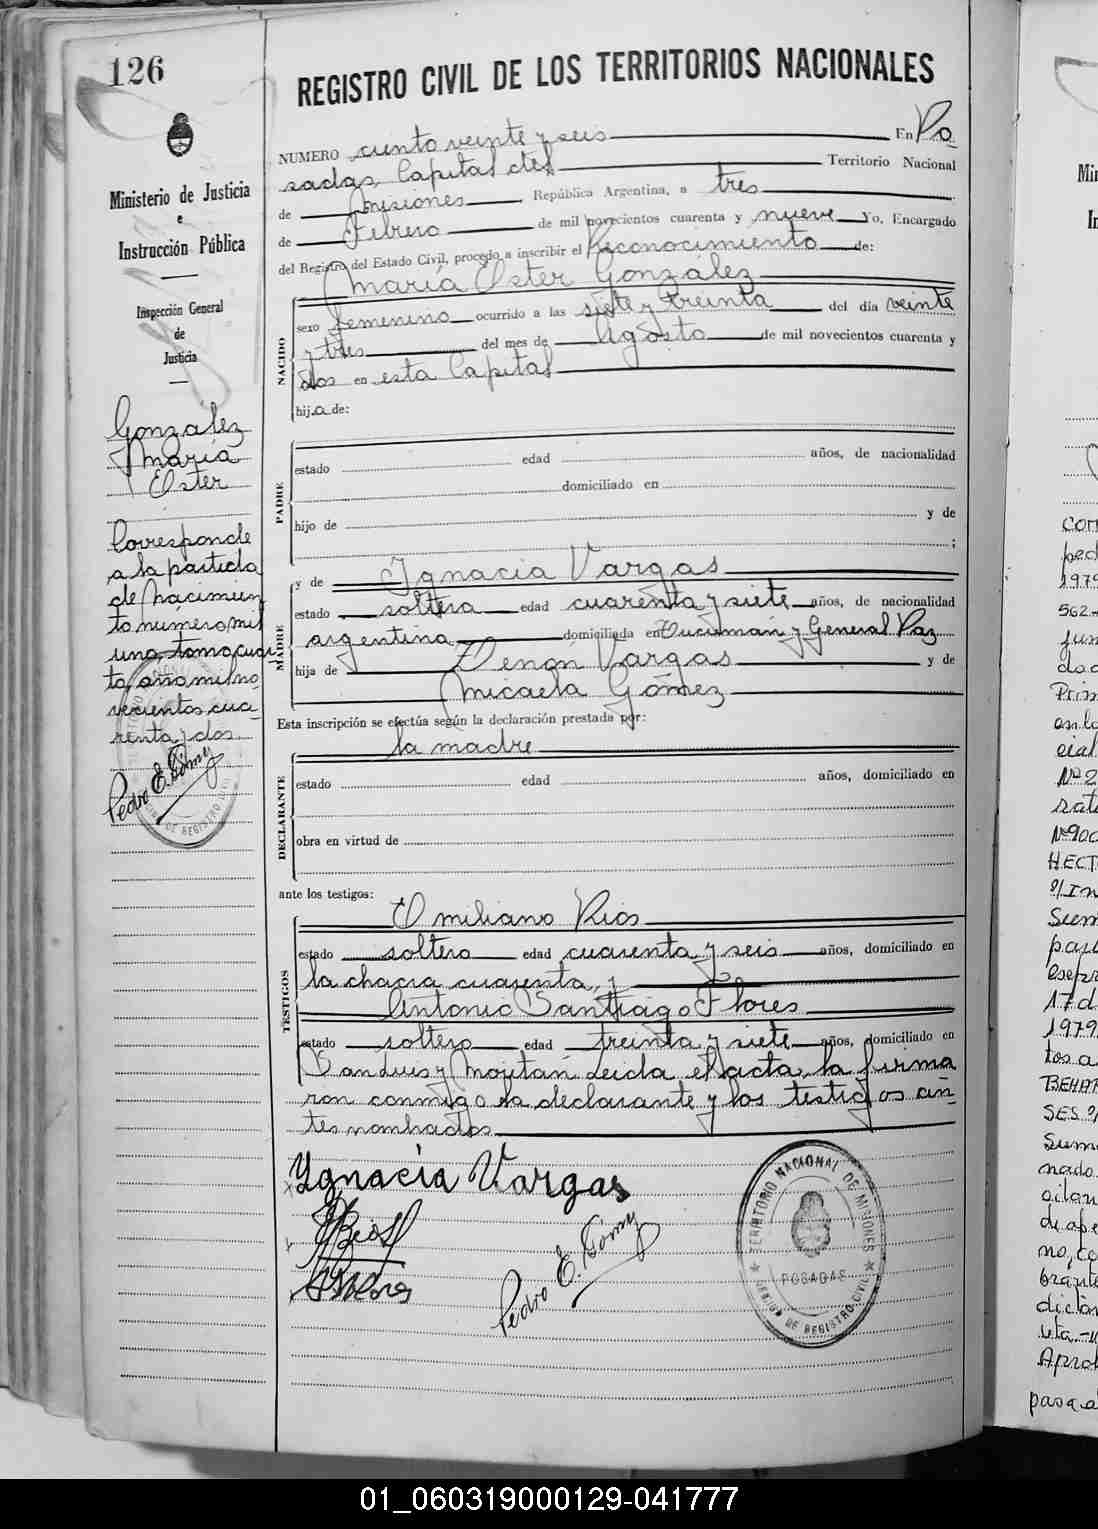 126
Ministerio de Justicia
e
Instrucción Pública
Inspección General
de
Justicia
González
María
Ester
Corresponde
a la partida
de Nacimien
to número mil
uno, tomo cuar
to, año mil no
vecientos cua-
renta y dos.
Pedro E.
REGISTRO CIVIL DE LOS TERRITORIOS NACIONALES
NUMERO ciento veinte y seis En Po
sadas, Capital del Territorio Nacional
de Misiones República Argentina, a tres
de Febrero de mil novecientos cuarenta y nueve Yo, Encargado
del Registro del Estado Civil, procedo a inscribir el Reconocimiento de:
María Ester González
NACIDO
sexo femenino ocurrido a las siete y treinta del día veinte
y tres del mes de Agosto de mil novecientos cuarenta y
dos en esta Capital
hija de:
PADRE
estado edad años, de nacionalidad
domiciliado en
hijo de y de
;
MADRE
y de Ignacia Vargas
estado soltera edad cuarenta y siete años, de nacionalidad
argentina domiciliada en Tucumán y General Paz
hija de Zenón Vargas y de
Micaela Gómez
Esta inscripción se efectúa según la declaración prestada por:
la madre
DECLARANTE
estado edad años, domiciliado en
obra en virtud de
ante los testigos:
TESTIGOS
Emiliano Rios
estado soltero edad cuarenta y seis años, domiciliado en
la chacra cuarenta, y
Antonio Santiago Flores
estado soltero edad treinta y siete años, domiciliado en
San Luis y Leida el acta, la firma
ron conmigo la declarante y los testigos an-
tes nombrados
Ygnacia Vargas
Pedro E.
TERRITORIO NACIONAL DE MISIONES
POSADAS
DE REGISTRO CIVIL
1979
562-
Nº 2
HECT
17 d
1979
tos a
BEHA
SES
Apro
pasa a
01_060319000129-041777